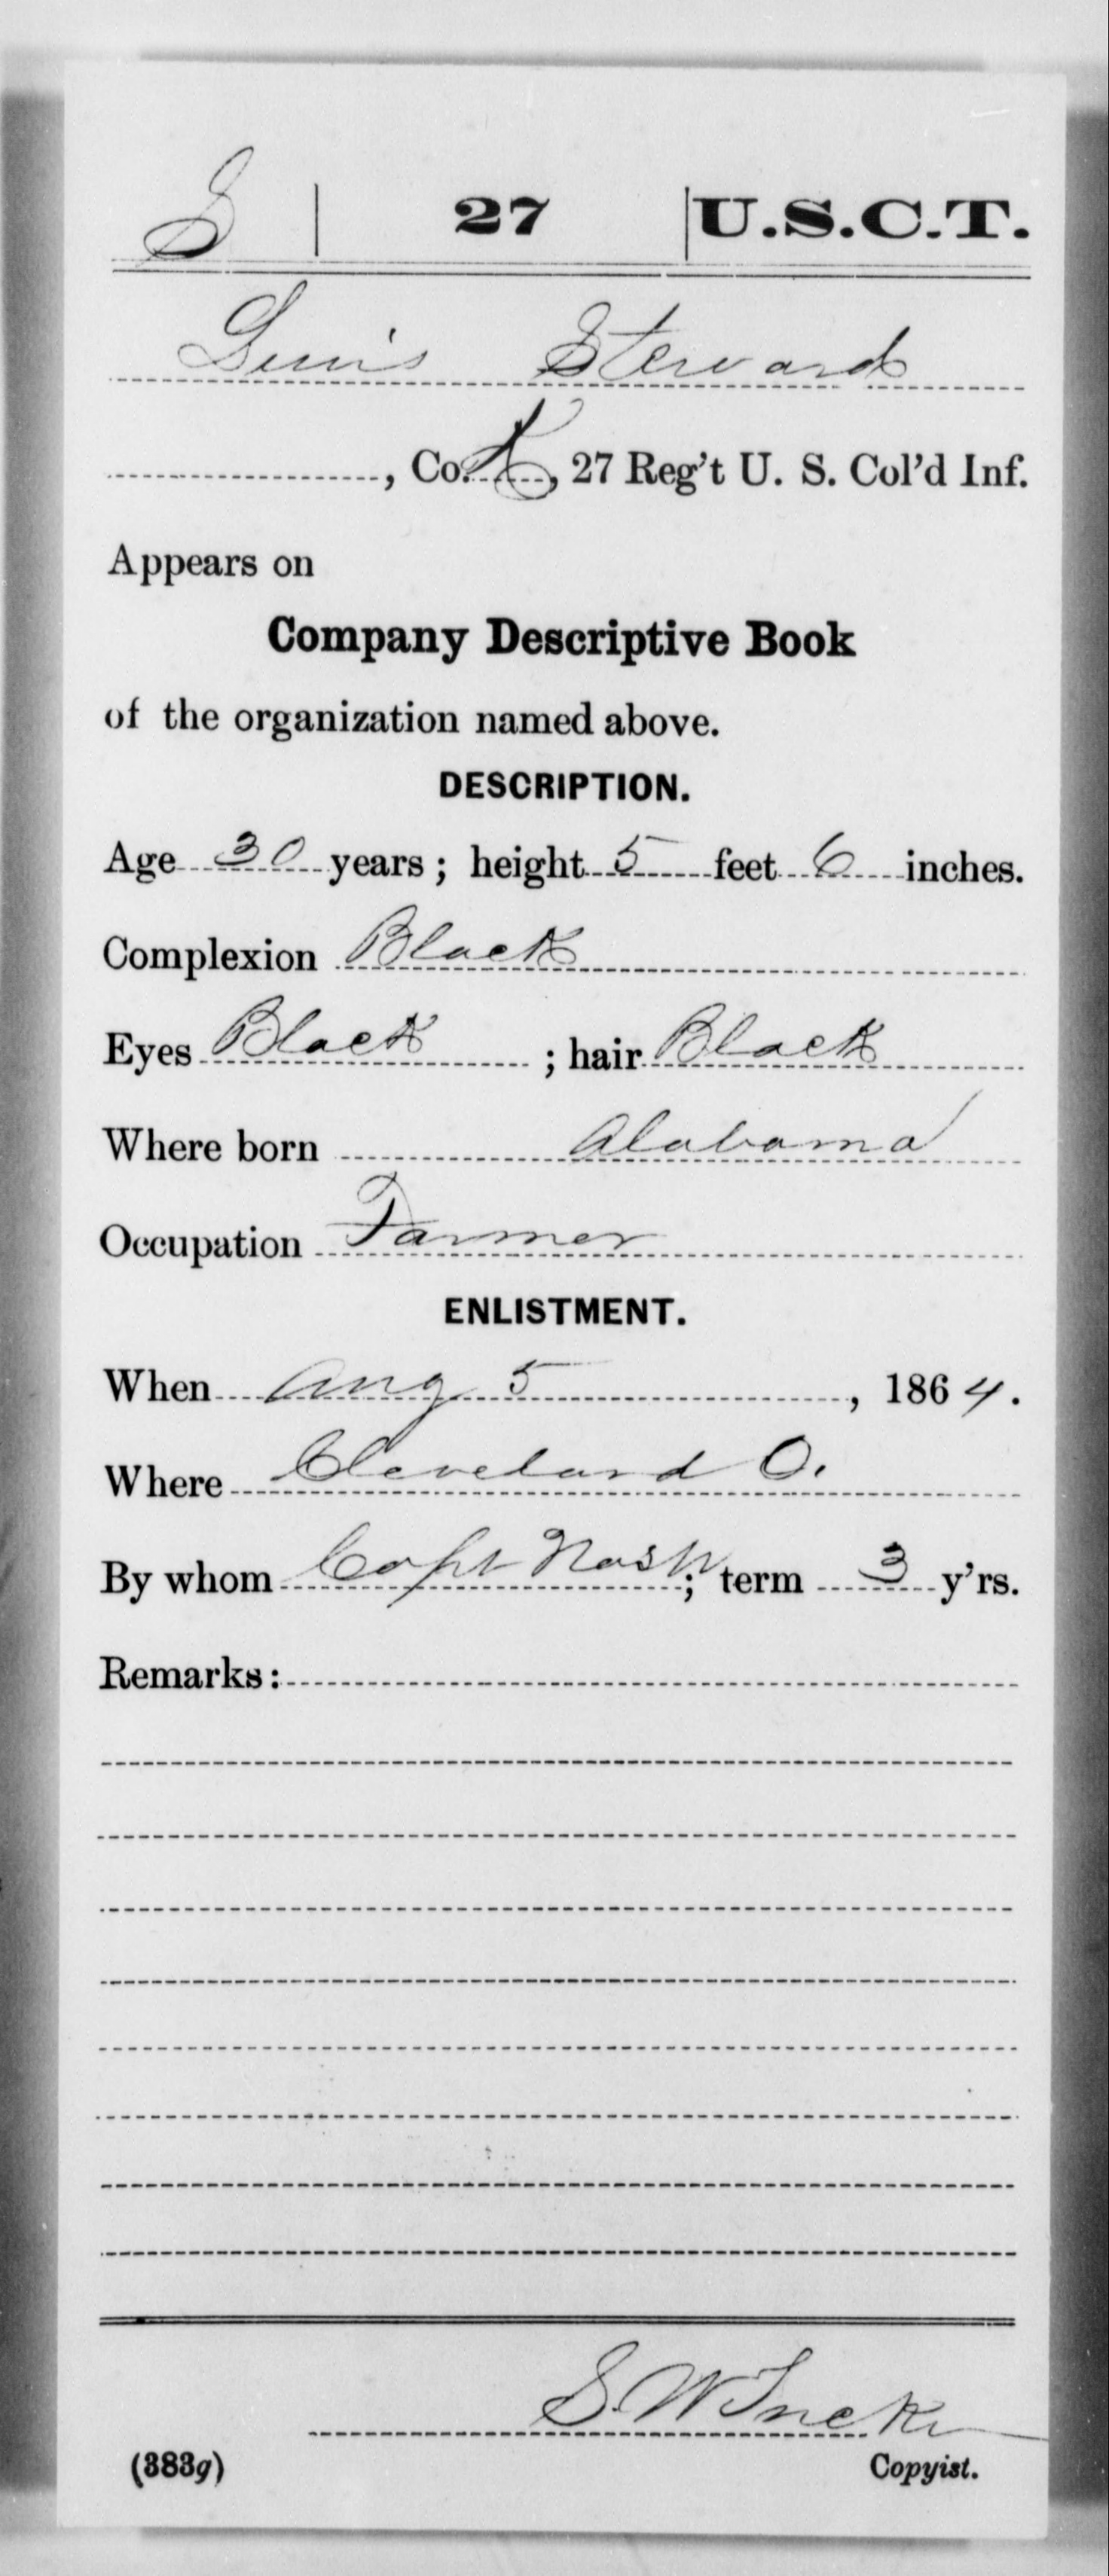 S | 27 | U.S.C.T.
Lewis Steward
, Co. K, 27 Reg't U. S. Col'd Inf.
Appears on
Company Descriptive Book
of the organization named above.
DESCRIPTION.
Age 30 years; height 5 feet 6 inches.
Complexion Black
Eyes Black ; hair Black
Where born Alabama
Occupation Farmer
ENLISTMENT.
When Aug 5, 1864.
Where Cleveland O.
By whom Capt Nash; term 3 y'rs.
Remarks:
S. W.
(383g) Copyist.